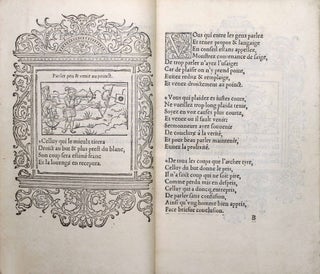 Parler peu & venir au poinct.
Celluy qui le mieulx tirera
Droict au but & plus prest du blanc,
Son coup sera estimé franc
Et la louenge en recepvra.
Vous qui entre les gens parlez
Et tenez propos & langaige
En conseil estans appellez,
Monstrez contenance de saige,
De trop parler n'ayez
Car de plaisir on n'y prend poinct,
Evitez redictz &
Et venez droictement au poinct.
Vous qui plaidez es iustes cours,
Ne vueillez trop long plaid tenir,
Soyez en faictz subtilz & courts,
Vous souvenir
Seurement ayez souvenir
De la verité,
Et pour beau parler maintenir,
Evitez la prolixité.
De tous les coups que l'archer tyre,
Celluy du but donne le pris,
Il n'a sinon coup qui ne soit pire,
Comme perdu mis en despris,
Celluy qui a doncq entrepris
De compter ou parler sans fiction,
Ainsi qu'ung homme bien appris,
Face briefve conclusion.
B